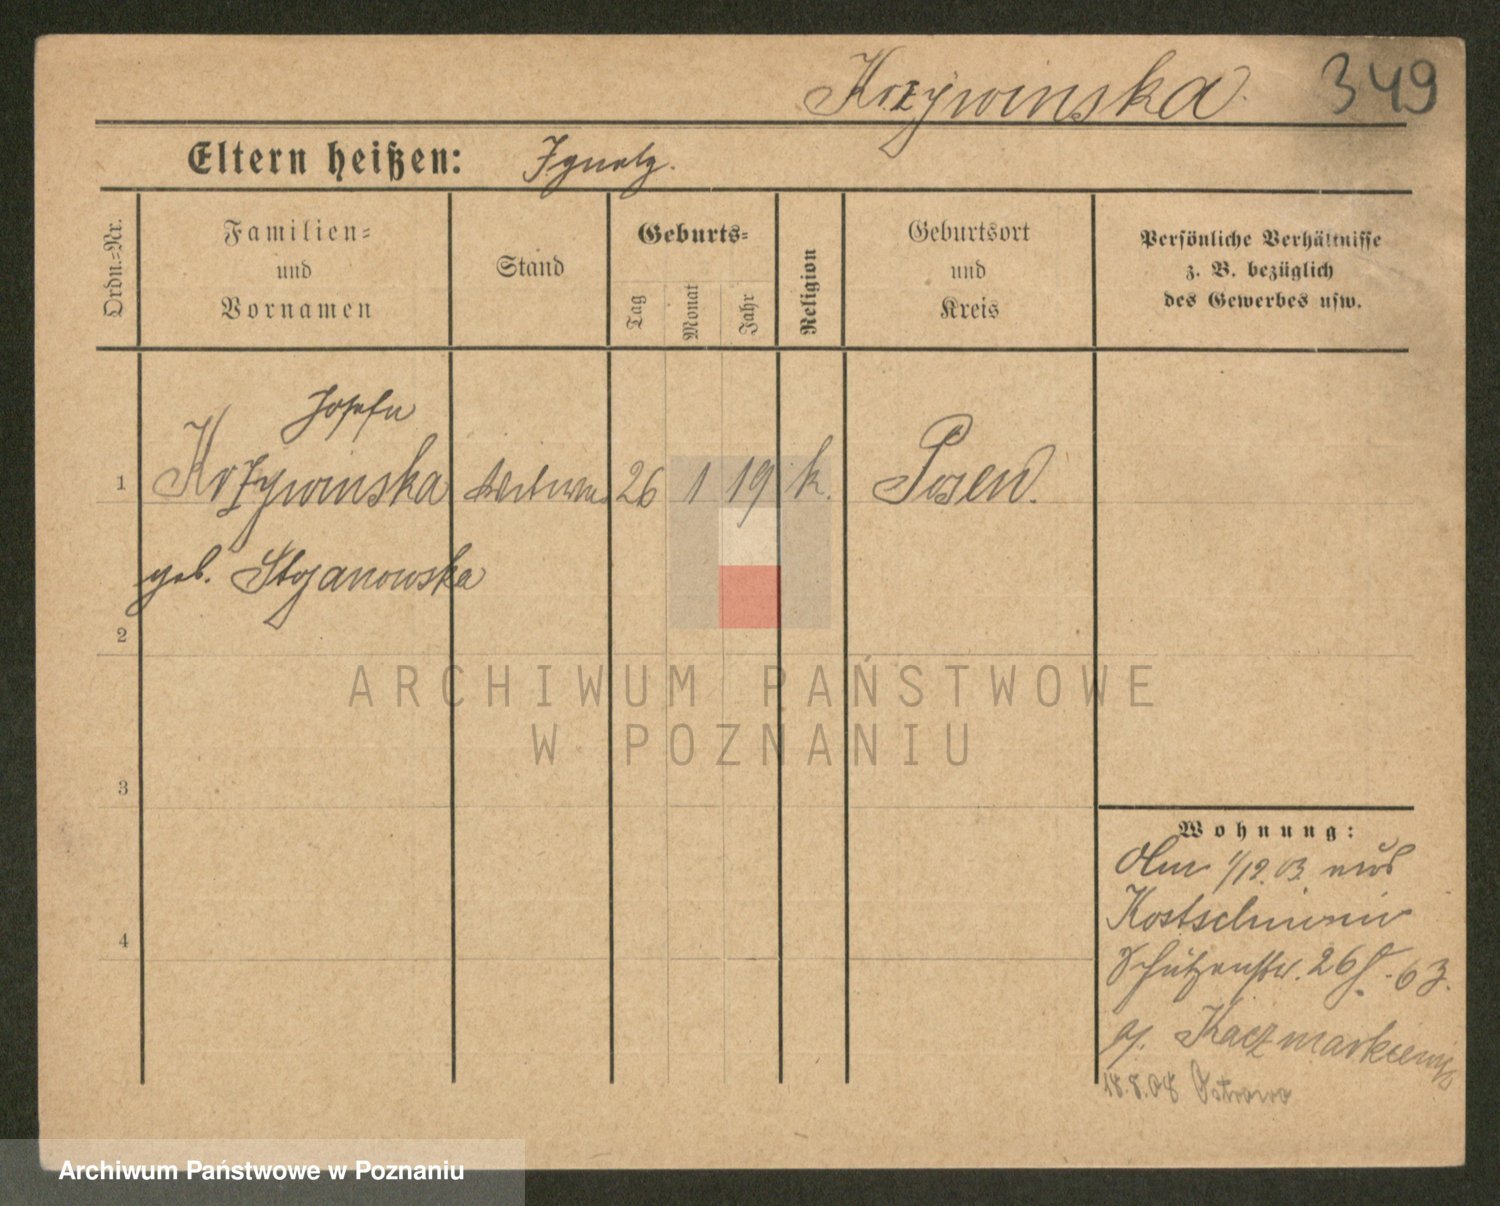 Krzywinska 349
Eltern heißen: Ignatz.
Ordn.-Nr.
Familien-
und
Vornamen
Stand
Geburts-
Tag
Monat
Jahr
Religion
Geburtsort
und
Kreis
Persönliche Verhältnisse
z. B. bezüglich
des Gewerbes usw.
Josefa
1 Krzywinska 26 1 19 k. Posen.
geb. Stojanowska
2
3
4
Wohnung:
1/12. 03. aus
Kostschin
Schützenstr. 26
Kaczmarkiewicz
18.8.08 Ostrowo
ARCHIWUM PAŃSTWOWE
W POZNANIU
Archiwum Państwowe w Poznaniu